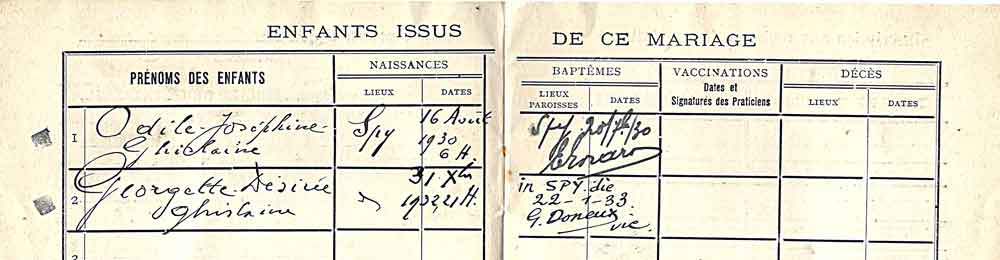 ENFANTS ISSUS DE CE MARIAGE
PRÉNOMS DES ENFANTS
NAISSANCES
LIEUX
DATES
BAPTÊMES
LIEUX PAROISSES
DATES
VACCINATIONS
Dates et
Signatures des Praticiens
DÉCÈS
LIEUX
DATES
1
Odile-Joséphine-
Ghislaine
Spy
16 Août
1930
6 H.
Spy
2.
Georgette-Désirée
Ghislaine
31 Xbre
1932, 21 H.
in SPY die
22-1-33.
G. Doneux
vic.
3